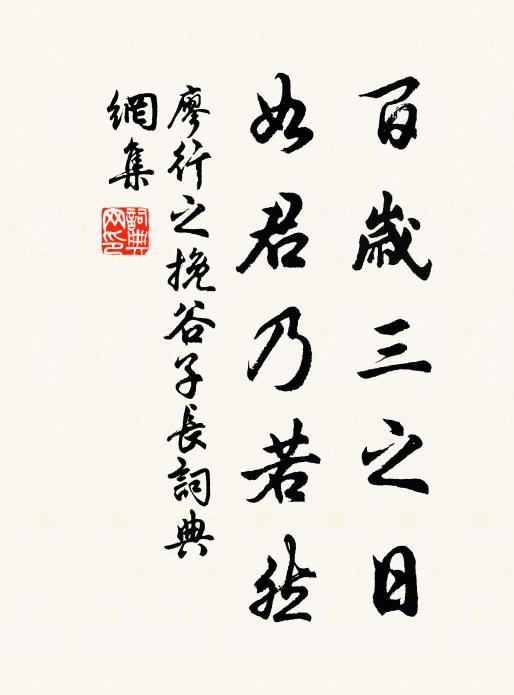 百歲三之日
如君乃若然
廖行之挽谷子長詞典
網集
詞典網印